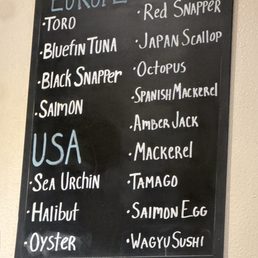 EUROPE
·TORO
·BLUEFIN TUNA
·BLACK SNAPPER
·SALMON
USA
·SEA URCHIN
·HALIBUT
·OYSTER
·RED SNAPPER
·JAPAN SCALLOP
·OCTOPUS
·SPANISH MACKEREL
·AMBER JACK
·MACKEREL
·TAMAGO
·SALMON EGG
·WAGYU SUSHI